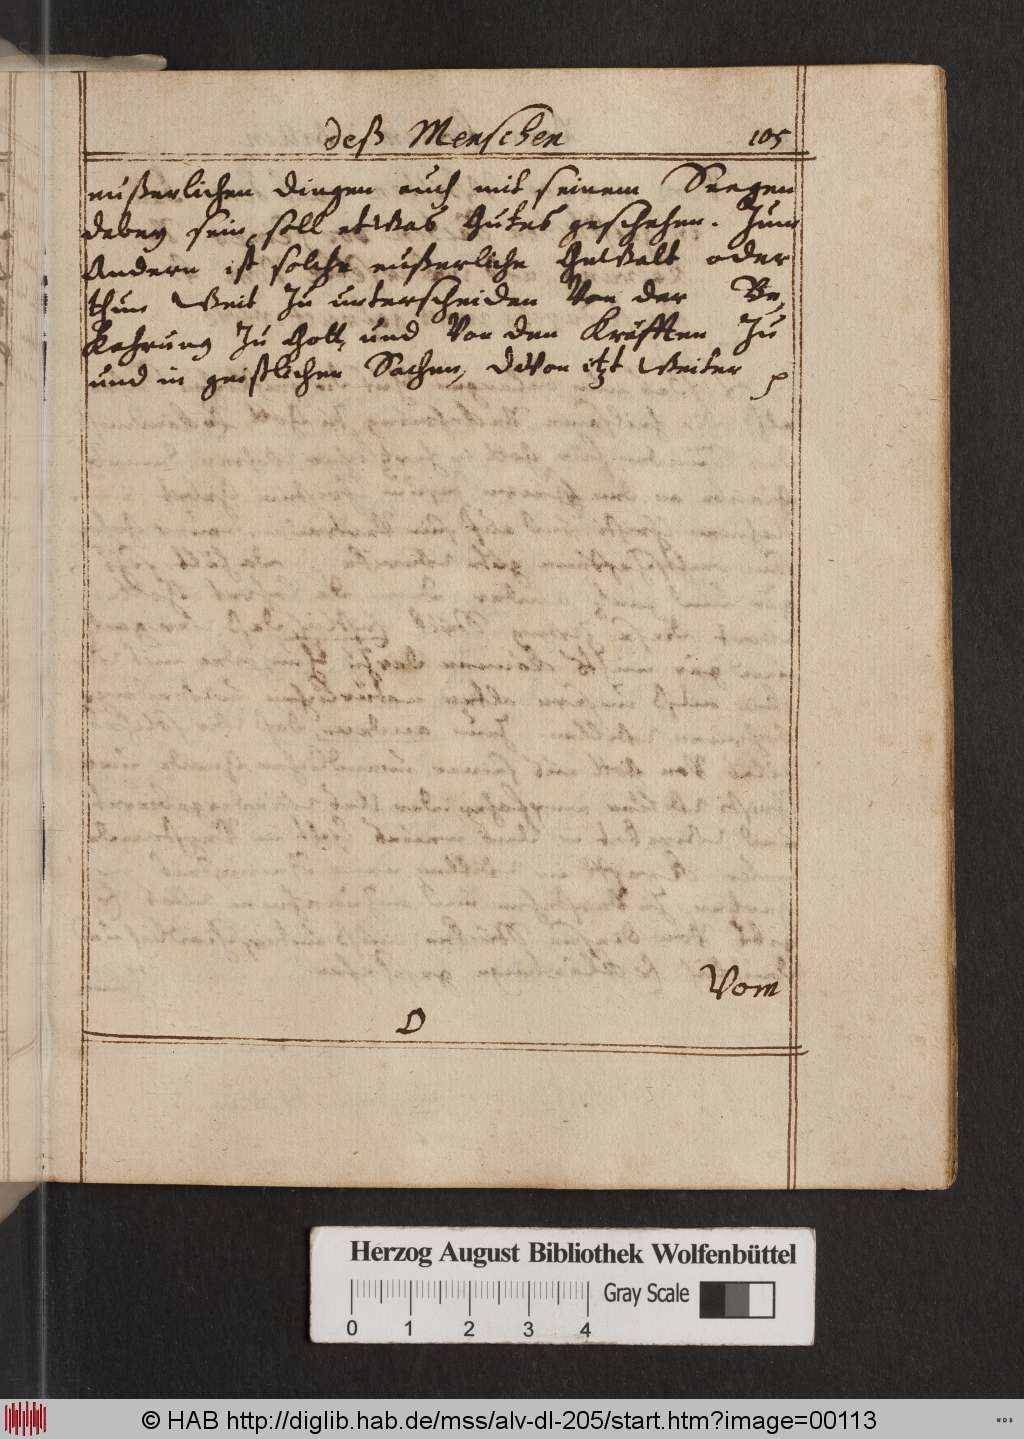 deß Menschen 105
eußerlichen dingen auch mit seinem Seegen
dabey sein, soll etwas Gutes geschehen. Zum
Andern ist solche eußerliche Gewalt oder
thun Weit Zu unterscheiden Von der Be,
Kehrung Zu Gott, und Von den Kräfften Zu
und in geistlichen Sachen, dVon itzt Weiter
Vom
O
Herzog August Bibliothek Wolfenbüttel
Gray Scale
0 1 2 3 4
© HAB http://diglib.hab.de/mss/alv-dl-205/start.htm?image=00113